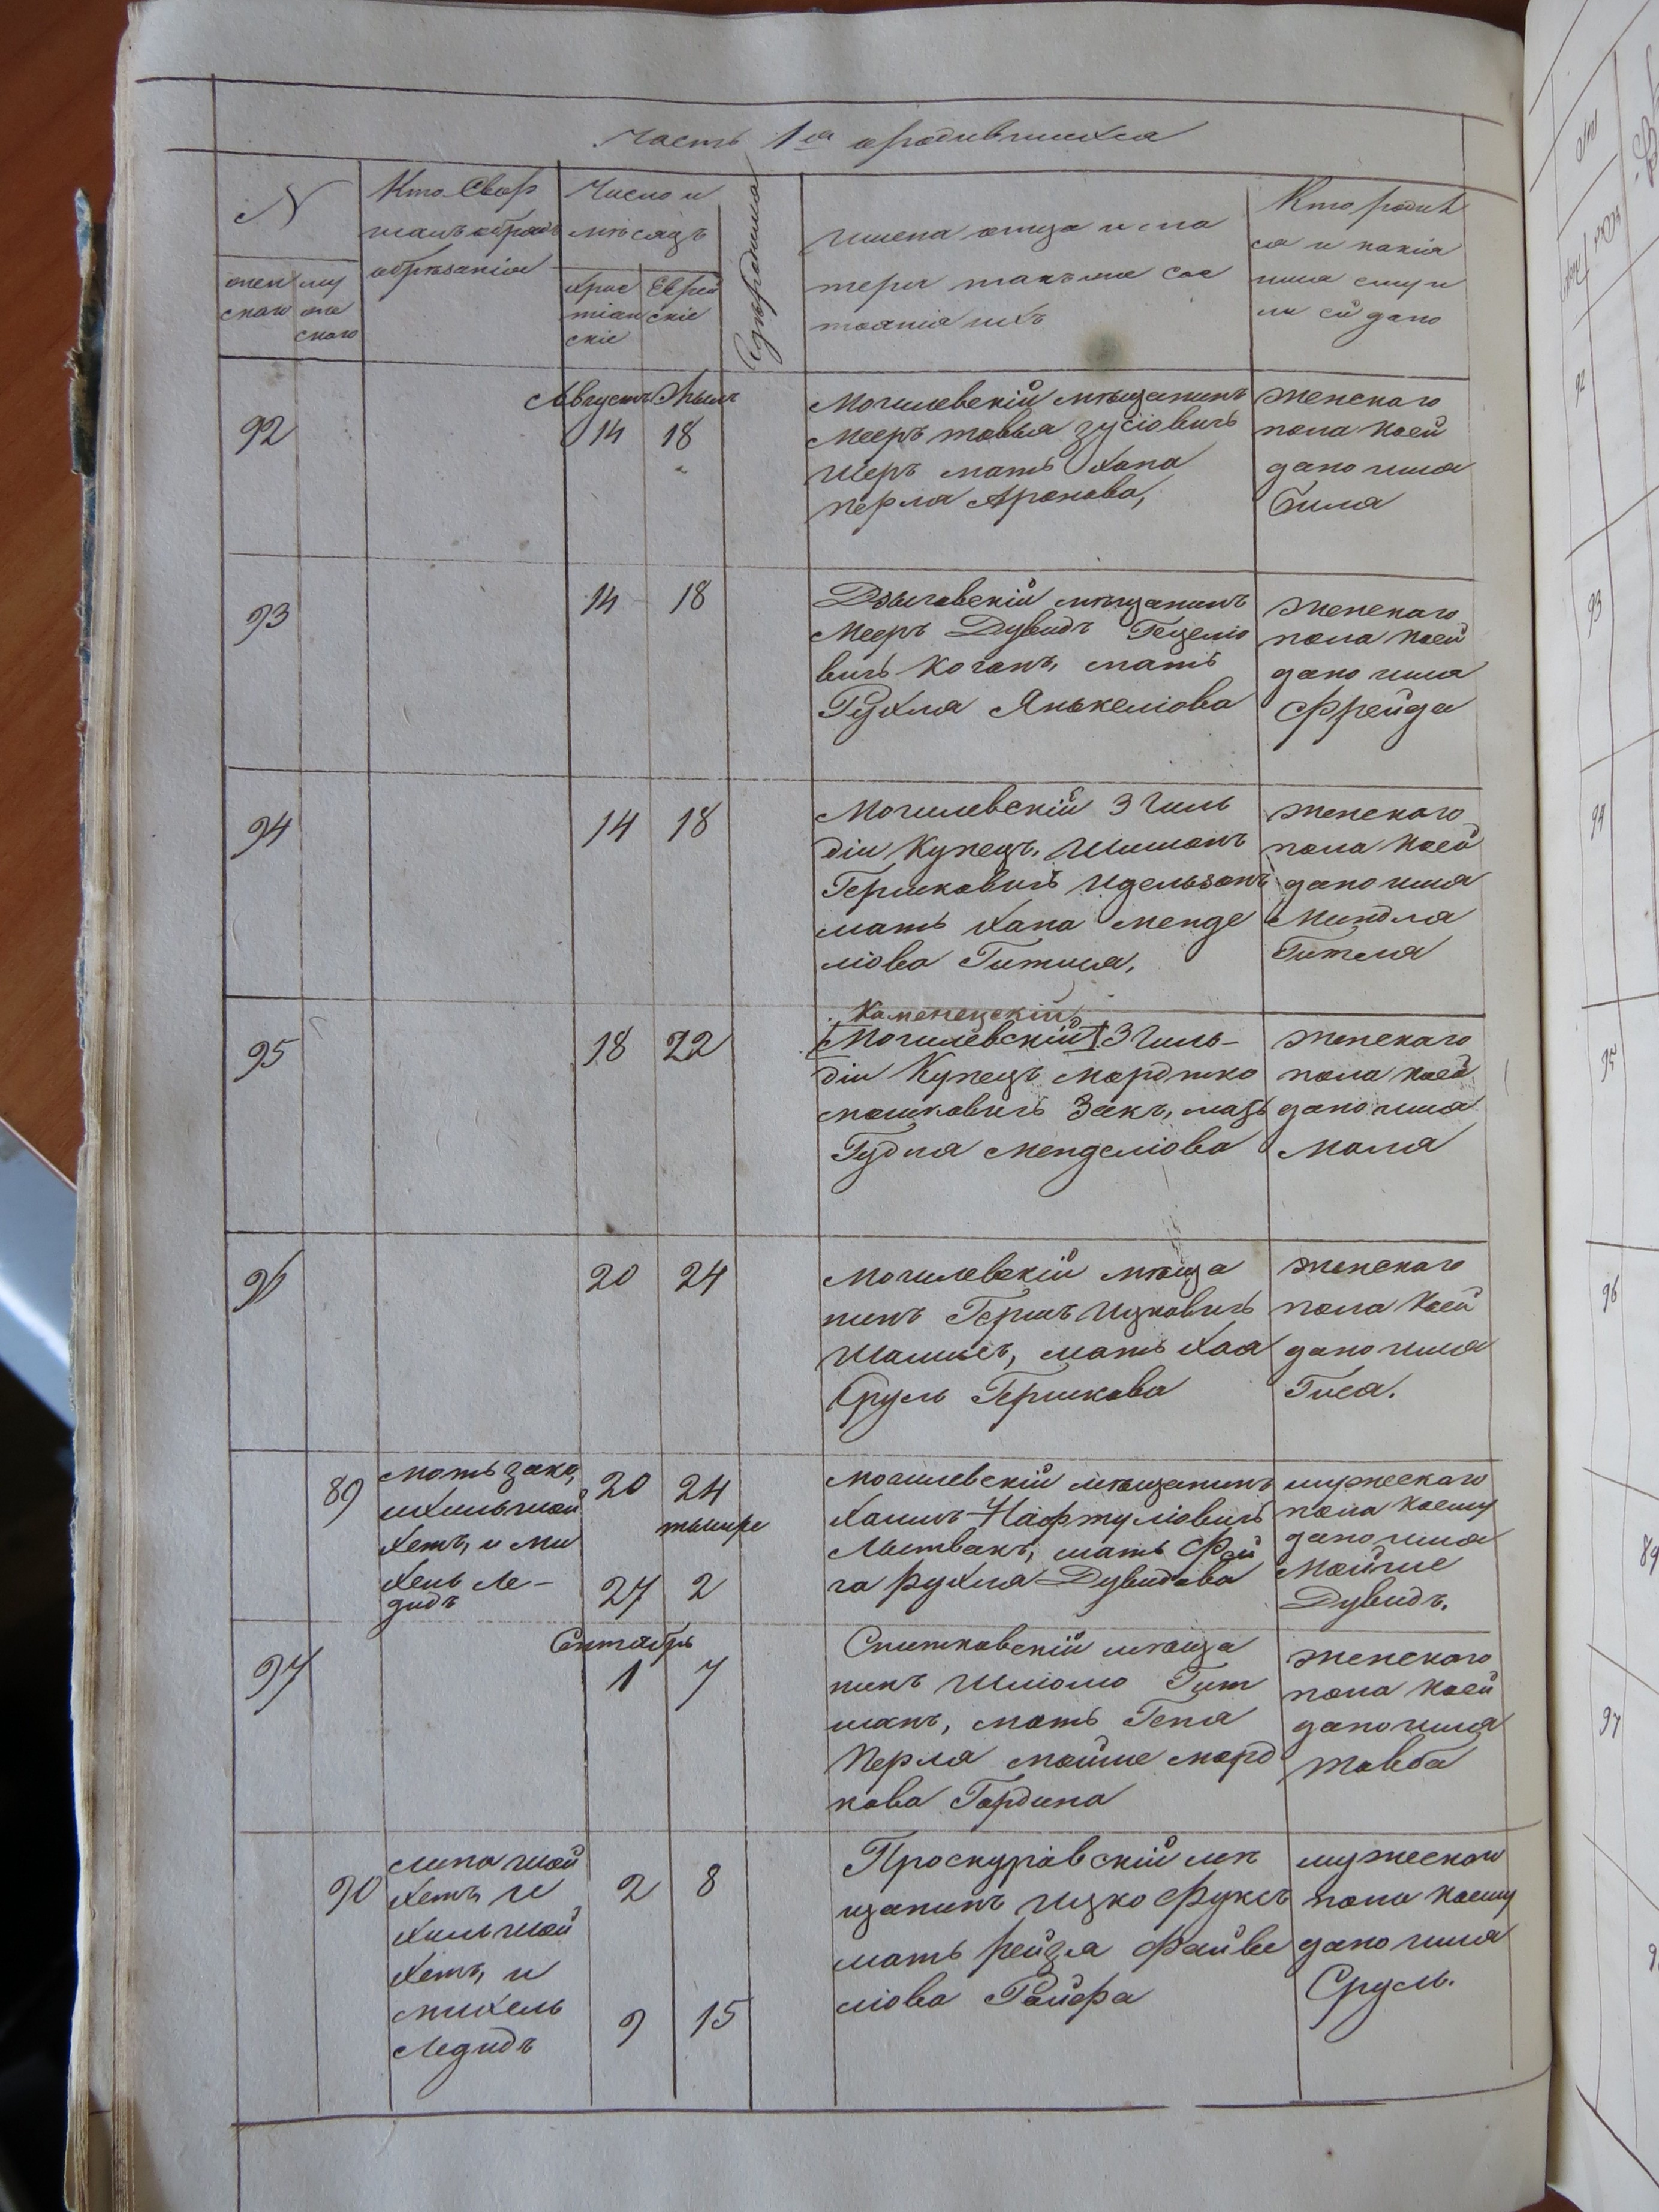 Часть 1ая о родившихся
N
Кто Свер
шалъ обрядъ
обрѣзанія
Число и
мѣсяцъ
Гдѣ родился
Имена отца и ма
тери такъже сос
тоянія ихъ
Кто родил
ся и какія
имя ему и
ли ей дано
жен
скаго
му
же
скаго
Хрис
тіан
скіе
Еврей
скіе
92
Августъ
14
18
Могилевскій мѣщанинъ
Мееръ товья зусіовичъ
Шеръ мать Хана
перля Аронова,
Женскаго
пола коей
дано имя
Била
93
14
18
Дзыговскій мѣщанинъ
Мееръ Дувидъ Гецеліо
вичъ Коганъ, мать
Рухля Янькеліова
Женскаго
пола коей
дано имя
Фрейда
94
14
18
Могилевскій 3 Гиль
діи Купецъ, Шимонъ
Гершковичъ Идельзонъ
мать Хана Менде
ліова Гитля,
Женскаго
пола коей
дано имя
Миндля
Гитля
95
18
22
Каменецкій
Могилевскій 3 Гиль-
діи Купецъ Мордко
Мошковичъ Закъ, мать
Гудля Менделіова
Женскаго
пола коей
дано имя
Маля
96
20
24
Могилевскій мѣща
нинъ Гершъ Ицковичъ
Шалисъ, мать Хая
Сруль Гершкова
Женскаго
пола коей
дано имя
Гися.
89
Мать закъ,
ихиль шой
хетъ, и Ми
хель Ле-
дидъ
20
24
тышре
27
2
Могилевскій мѣщанинъ
Хаимъ Нафтуліовичъ
Лытвакъ, мать Фей
га рухля Дувидова
мужескаго
пола коему
дано имя
Мойше
Дувидъ.
97
Сентябрь
1
7
Снитковскій мѣща
нинъ Шліомо Гит
манъ, мать Геня
Перля Мойше Морд
кова Гордина
Женскаго
пола коей
дано имя
Товба
90
Липа шой
хетъ и
Хиль шой
хетъ, и
михель
Ледидъ
2
8
9
15
Проскуровскій мѣ
щанинъ Ицко Фуксъ
мать рейзя Файве
ліова Райфа
мужескаго
пола коему
дано имя
Сруль.